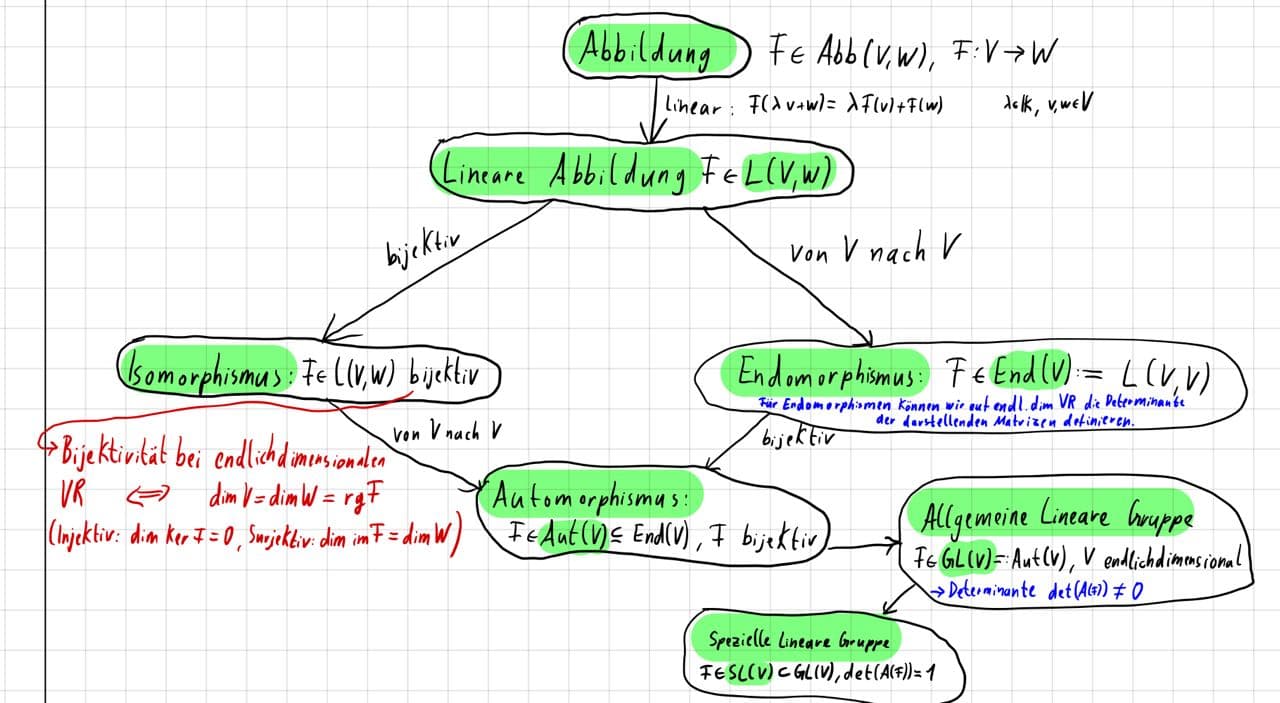 Abbildung F ∈ Abb(V,W), F: V → W
linear: F(λv+w) = λF(v)+F(w) λ∈K, v,w∈V
Lineare Abbildung F ∈ L(V,W)
bijektiv
von V nach V
Isomorphismus: F ∈ L(V,W) bijektiv
Endomorphismus: F ∈ End(V) := L(V,V)
Für Endomorphismen können wir auf endl. dim VR die Determinante
der darstellenden Matrizen definieren.
von V nach V
bijektiv
→ Bijektivität bei endlichdimensionalen
VR ⟺ dim V = dim W = rg F
(Injektiv: dim ker F = 0, Surjektiv: dim im F = dim W)
Automorphismus:
F ∈ Aut(V) ⊆ End(V), F bijektiv
Allgemeine Lineare Gruppe
F ∈ GL(V) =: Aut(V), V endlichdimensional
→ Determinante det(A(F)) ≠ 0
Spezielle Lineare Gruppe
F ∈ SL(V) ⊂ GL(V), det(A(F)) = 1